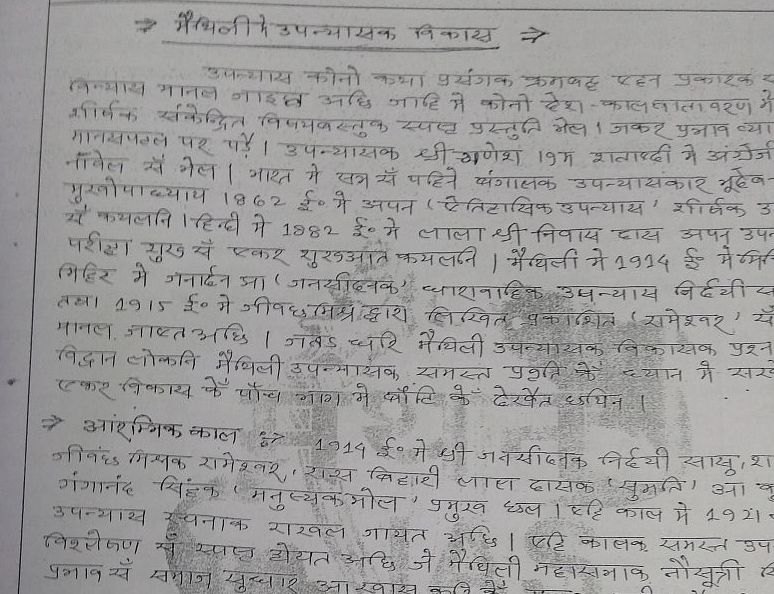 → मैथिली मे उपन्यासक विकास →
उपन्यास कोनो कथा प्रसंगक क्रमबद्ध एहन प्रकारक
विन्यास मानल जाइछ अछि जाहि मे कोनो देश-कालवातावरण मे
शीर्षक संकेन्द्रित विषयवस्तुक स्पष्ट प्रस्तुति भेल। जकर प्रभाव
मानसपटल पर पड़ै। उपन्यासक श्री गणेश 19म शताब्दी मे अंग्रेजी
नॉवेल सँ भेल। भारत मे सब सँ पहिने बंगालक उपन्यासकार भूदेव
मुखोपाध्याय 1862 ई॰ मे अपन 'ऐतिहासिक उपन्यास' शीर्षक
सँ कयलनि। हिन्दी मे 1882 ई॰ मे लाला श्री निवास दास अपन
परीक्षा गुरु सँ एकर शुरुआत कयलनि। मैथिली मे 1914 ई॰ मे
मिहिर मे जनार्दन झा 'जनसीदनक' धारावाहिक उपन्यास निर्दयी
तथा 1915 ई॰ मे जीवछ मिश्र द्वारा लिखित प्रकाशित 'रामेश्वर' सँ
मानल जाइत अछि। जतऽ धरि मैथिली उपन्यासक विकासक प्रश्न
विद्वान लोकनि मैथिली उपन्यासक समस्त प्रवृति केँ ध्यान मे
एकर विकास केँ पाँच भाग मे बाँटि केँ देखैत छथिन।
→ आरंभिक काल :→ 1914 ई॰ मे श्री जनसीदनक निर्दयी सासु,
जीवछ मिश्रक रामेश्वर, रास बिहारी लाल दासक 'सुमति' आ
गंगानंद सिंहक 'मनुष्यक मोल' प्रमुख छल। एहि काल मे
उपन्यास रचनाक राखल जायत अछि। एहि कालक समस्त
विश्लेषण सँ स्पष्ट होयत अछि जे मैथिली महासभाक नौसूत्री
प्रभाव सँ समाज सुधार